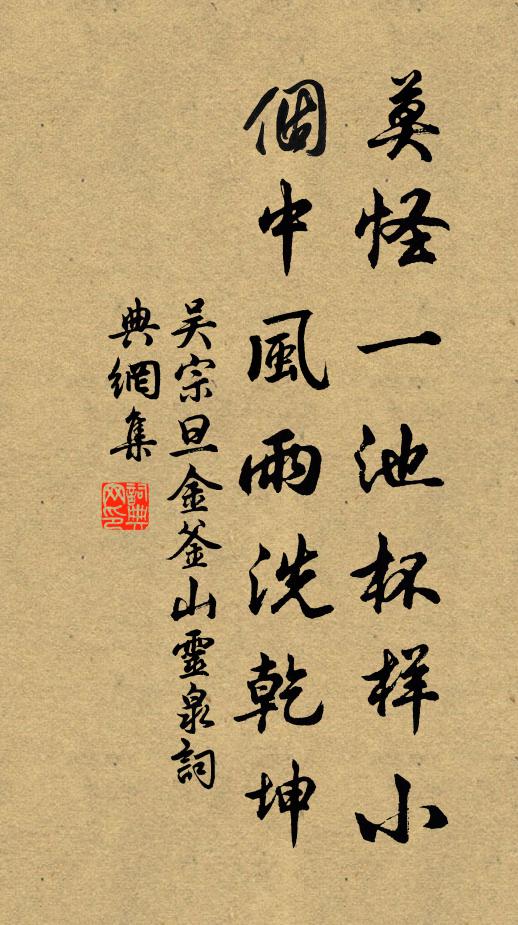 莫怪一池杯样小
個中風雨洗乾坤
吴宗旦金釜山靈泉詞
典網集
詞典网印